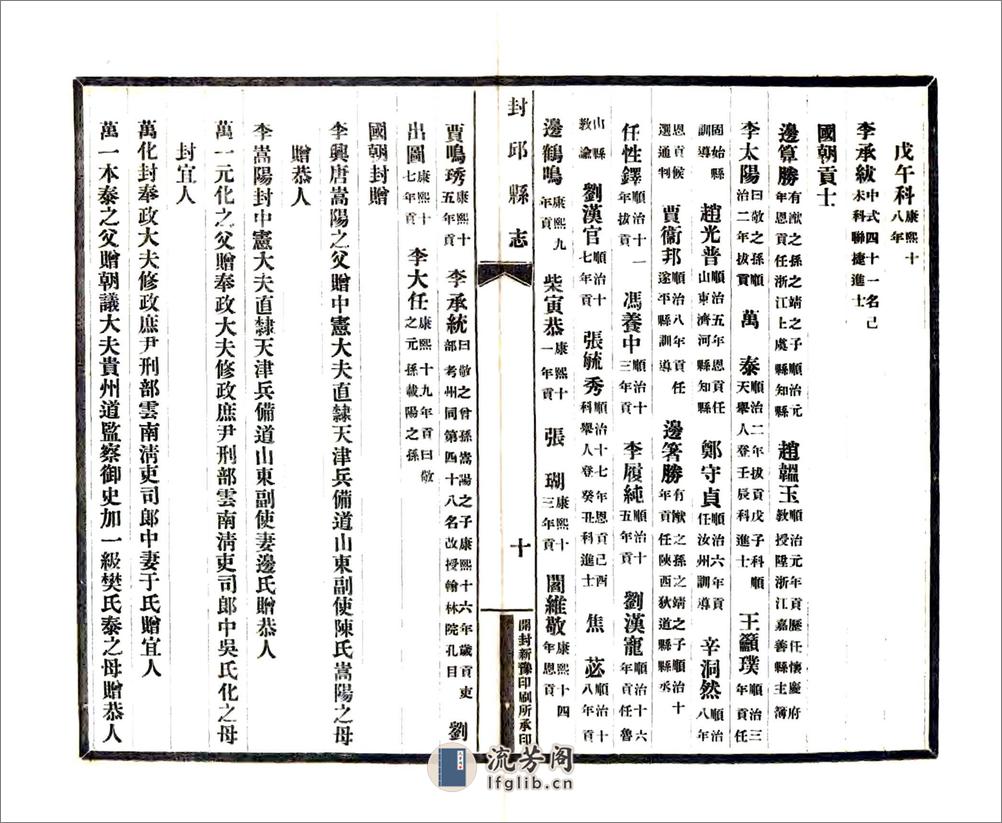 戊午科康熙十八年
李承紱中式四十一名己未科聯捷進士
國朝貢士
邊算勝有猷之孫之靖之子順治元年恩貢任浙江上虞縣知縣 趙韞玉順治元年貢歷任懷慶府教授陞浙江嘉善縣主簿
李太陽曰敬之孫順治二年拔貢 萬泰順治二年拔貢戊子科順天舉人登壬辰科進士 王籲璞順治三年貢任
固始縣訓導 趙光普順治五年恩貢任山東濟河縣知縣 鄭守貞順治六年貢任汝州訓導 辛洞然順治八年
恩貢候選通判 賈衞邦順治八年貢任遂平縣訓導 邊箸勝有猷之孫之靖之子順治十年貢任陝西狄道縣縣丞
任性鐸順治十一年拔貢 馮養中順治十三年貢 李履純順治十五年貢 劉漢寵順治十六年貢任魯
山縣教諭 劉漢官順治十七年貢 張毓秀順治十七年恩貢己酉科舉人登癸丑科進士 焦苾順治十八年貢
邊鶴鳴康熙九年貢 柴寅恭康熙十一年貢 張瑚康熙十三年貢 閻維敬康熙十四年恩貢
封邱縣志
十
開封新豫印刷所承印
賈鳴琇康熙十五年貢 李承統曰敬之曾孫嵩陽之子康熙十六年歲貢吏部考州同第四十八名改授翰林院孔目 劉
出圖康熙十七年貢 李大任康熙十九年貢曰敬之元孫載陽之孫
國朝封贈
李興唐嵩陽之父贈中憲大夫直隸天津兵備道山東副使陳氏嵩陽之母
贈恭人
李嵩陽封中憲大夫直隸天津兵備道山東副使妻邊氏贈恭人
萬一元化之父贈奉政大夫修政庶尹刑部雲南淸吏司郎中吳氏化之母
封宜人
萬化封奉政大夫修政庶尹刑部雲南淸吏司郎中妻于氏贈宜人
萬一本泰之父贈朝議大夫貴州道監察御史加一級樊氏泰之母贈恭人
流芳阁
lfglib.cn